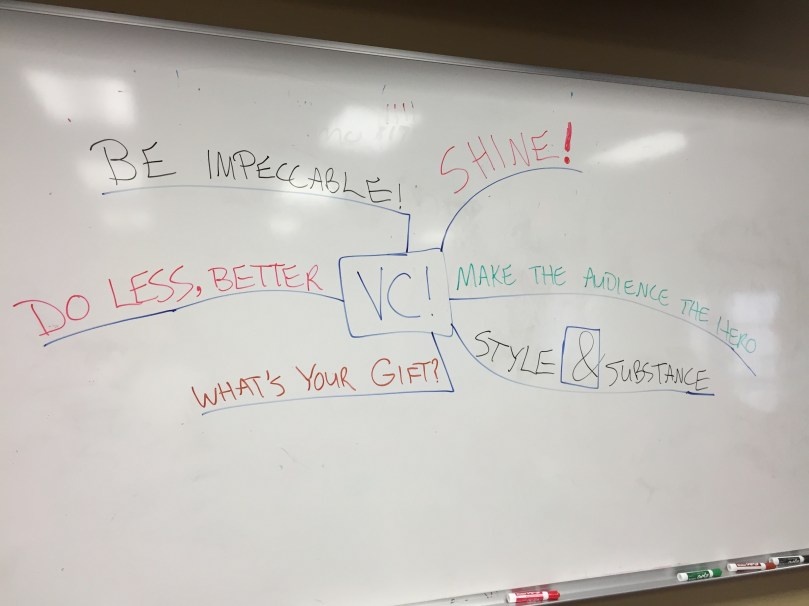 BE IMPECCABLE!
SHINE!
DO LESS, BETTER
VC!
MAKE THE AUDIENCE THE HERO
STYLE & SUBSTANCE
WHAT'S YOUR GIFT?